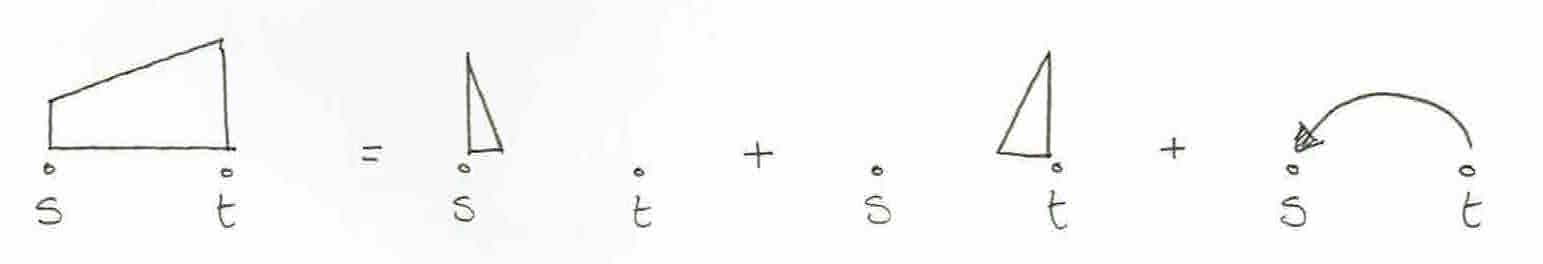 = + +
s t s t s t s t